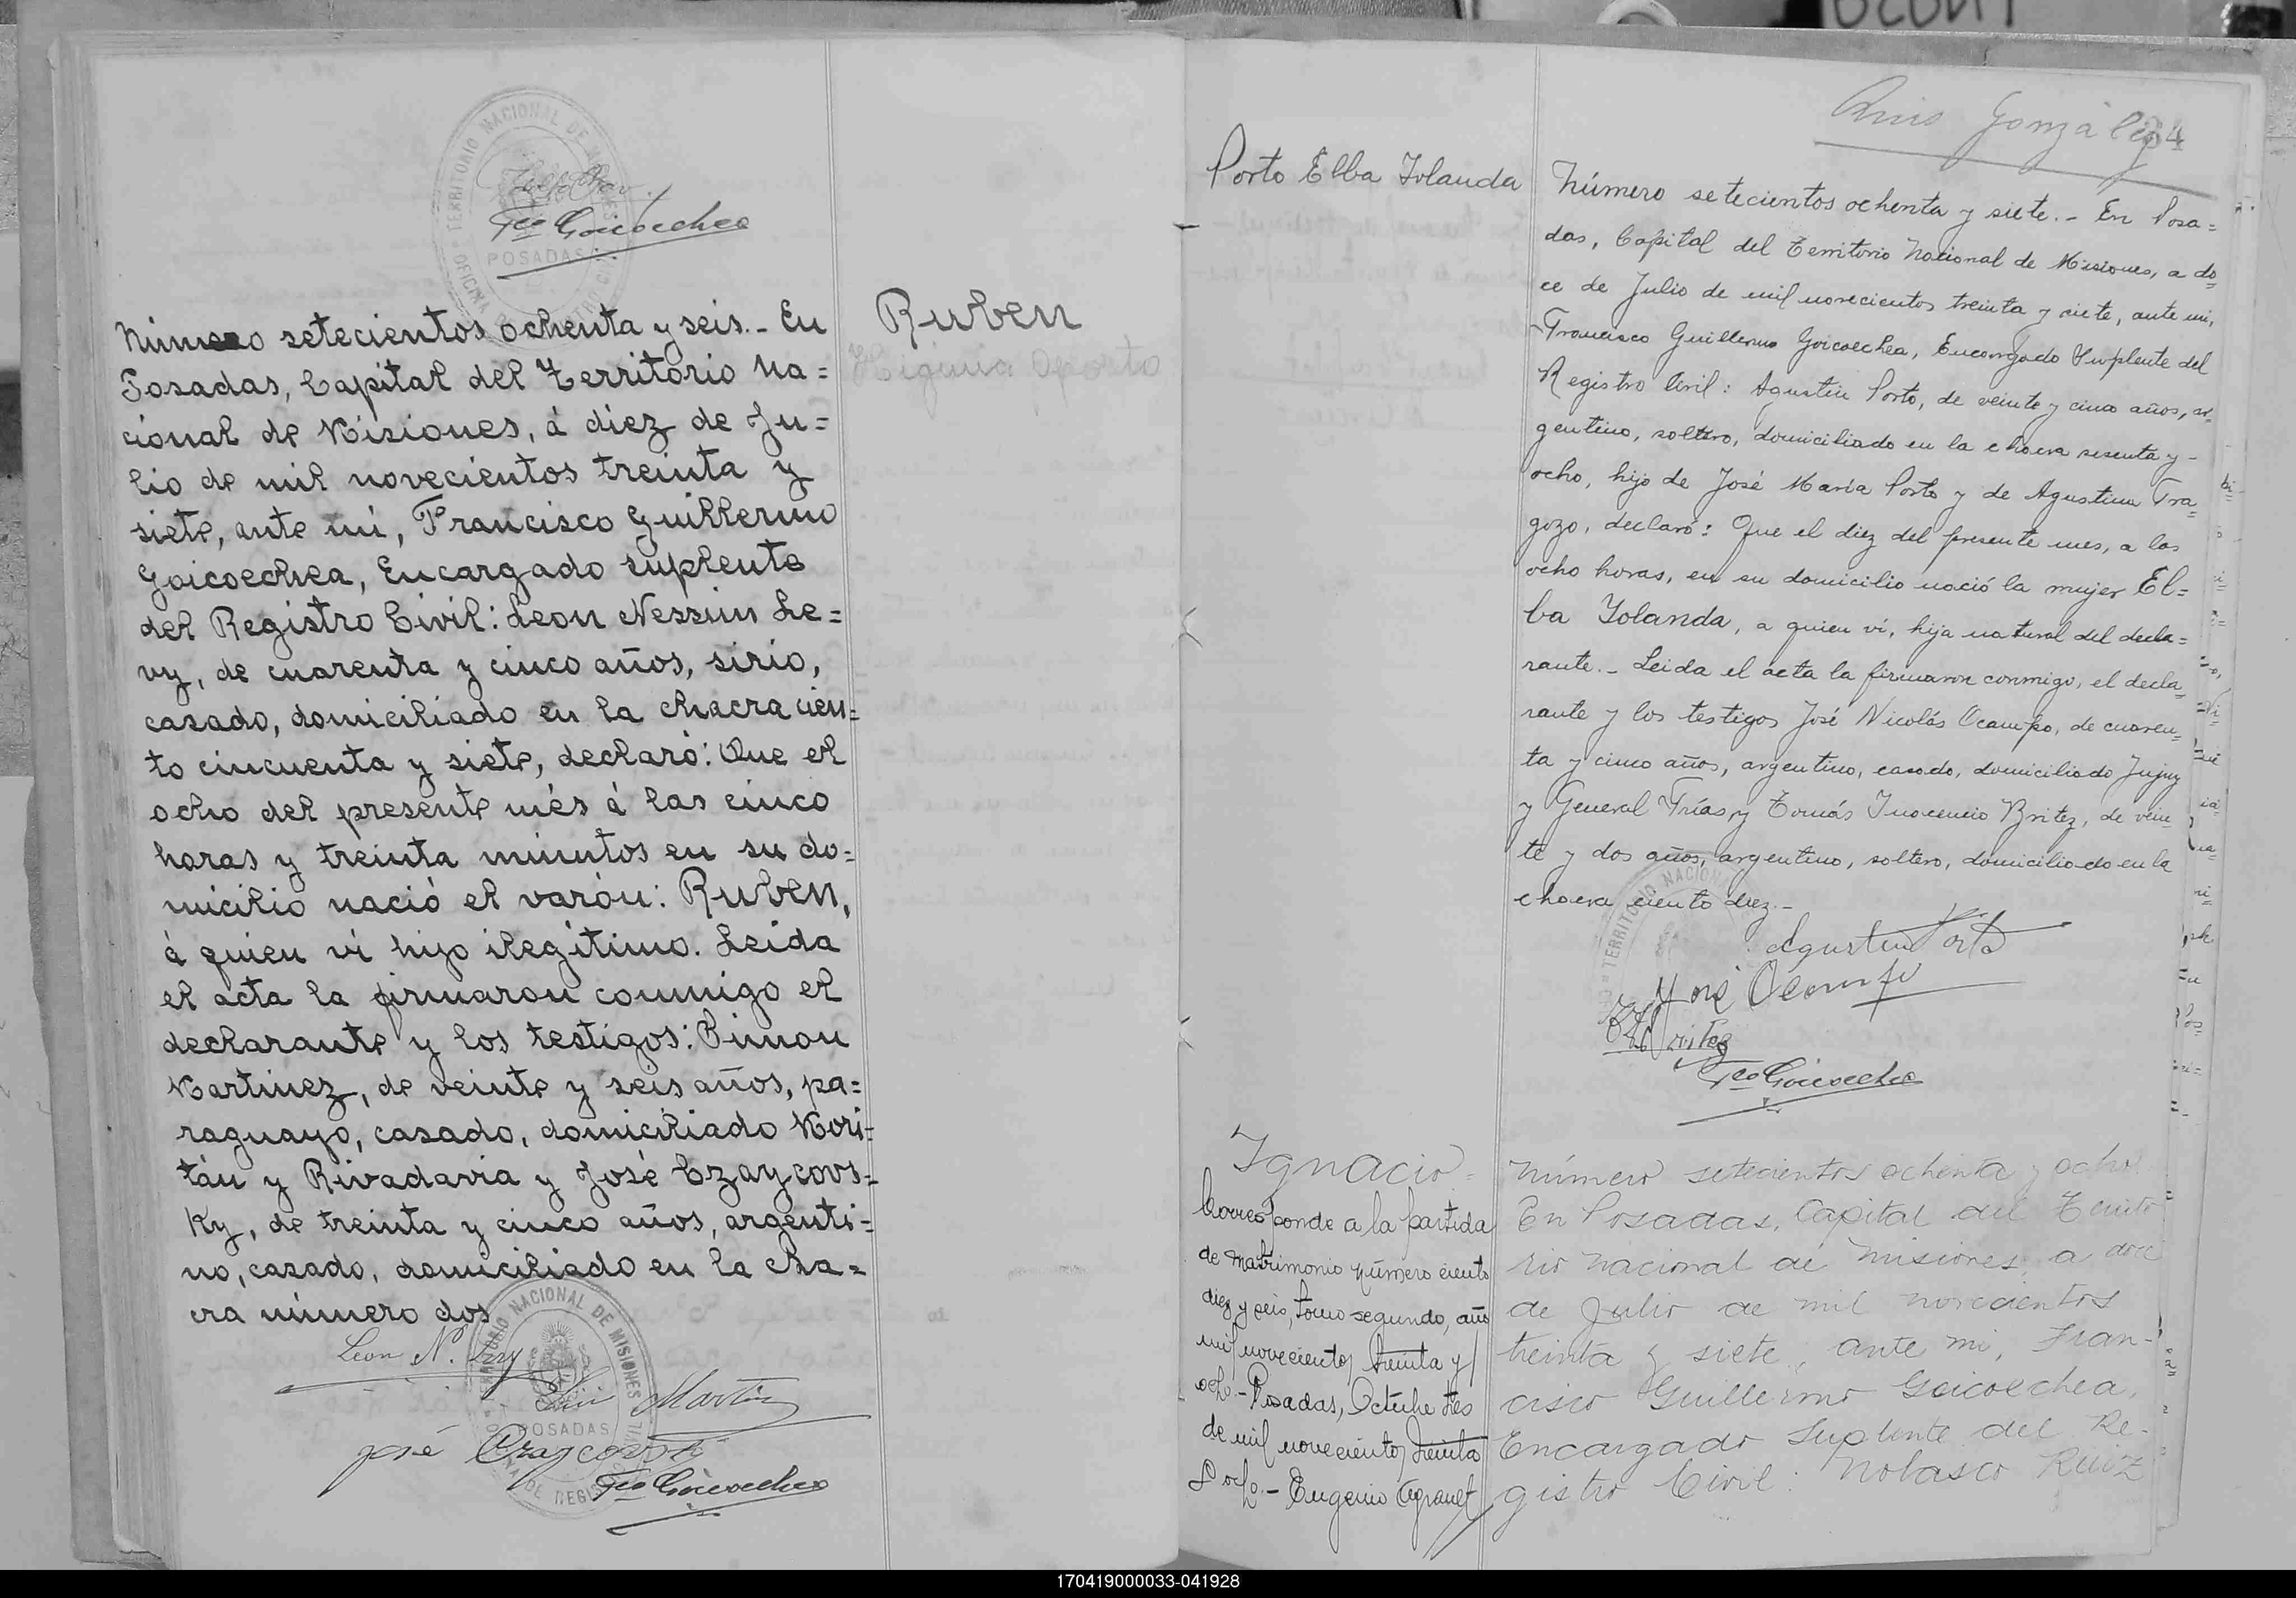 Fco Goicoechea
Número setecientos ochenta y seis. - En
Posadas, Capital del Territorio Na=
cional de Misiones, á diez de Ju=
lio de mil novecientos treinta y
siete, ante mí, Francisco Guillermo
Goicoechea, Encargado suplente
del Registro Civil: Leon Nessim Le=
vy, de cuarenta y cinco años, sirio,
casado, domiciliado en la chacra cien=
to cincuenta y siete, declaró: Que el
ocho del presente més á las cinco
horas y treinta minutos en su do=
micilio nació el varón: Ruben,
á quien ví hijo ilegítimo. Leida
el acta la firmaron conmigo el
declarante y los testigos: Simon
Martinez, de veinte y seis años, pa=
raguayo, casado, domiciliado
y Rivadavia y José Czaycovs=
ky, de treinta y cinco años, argenti=
no, casado, domiciliado en la cha=
cra número dos
Leon N. Levy
Martinez
José
Fco Goicoechea
TERRITORIO NACIONAL DE MISIONES
POSADAS
Ruben
Higinia Oporto
Luis González
Porto Elba Iolanda
Número setecientos ochenta y siete. - En Posa=
das, Capital del Territorio Nacional de Misiones, a do=
ce de Julio de mil novecientos treinta y siete, ante mi,
Francisco Guillermo Goicoechea, Encargado Suplente del
Registro Civil: Agustin Porto, de veinte y cinco años, ar=
gentino, soltero, domiciliado en la chacra sesenta y -
ocho, hijo de José María Porto y de Agustina Fra=
gozo, declaró: Que el diez del presente mes, a las
ocho horas, en su domicilio nació la mujer El=
ba Iolanda, a quien ví, hija natural del decla=
rante. - Leida el acta la firmaron conmigo, el decla=
rante y los testigos José Nicolás Ocampo, de cuaren=
ta y cinco años, argentino, casado, domiciliado Jujuy
y General Frías, y Tomás Inocencio Britez, de vein=
te y dos años, argentino, soltero, domiciliado en la
chacra ciento diez. -
Agustin Porto
José Ocampo
Britez
Fco Goicoechea
Ignacio =
Corresponde a la partida
de matrimonio número ciento
diez y seis, tomo segundo, año
mil novecientos treinta y
ocho. - Posadas, Octubre tres
de mil novecientos treinta
y ocho. - Eugenio
Número setecientos ochenta y ocho
En Posadas, Capital del Territo
rio Nacional de Misiones, a doce
de Julio de mil novecientos
treinta y siete, ante mi, Fran-
cisco Guillermo Goicoechea,
Encargado Suplente del Re-
gistro Civil: Nolasco Ruiz
170419000033-041928